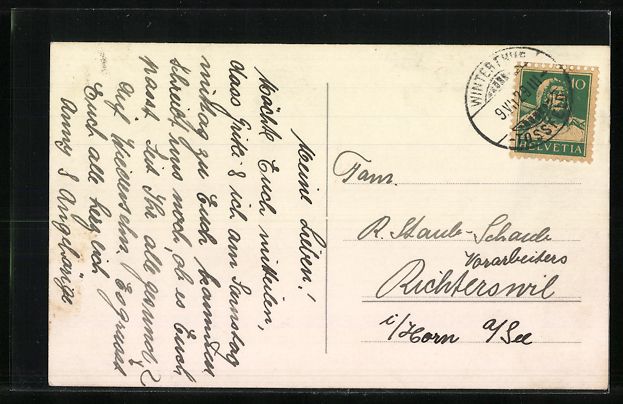 Meine Lieben!
Möchte Euch mitteilen,
dass Griti & ich am Samstag
mittag zu Euch kommen
schreibt uns noch, ob es Euch
passt. Seid Ihr alle gesund?
Auf Wiedersehn. Es grüsst
Euch alle herzlich
Anny & Angehörige
Fam.
R. Staub-Schaub
Vorarbeiters
Richterswil
i/Horn a/See
WINTERTHUR
10
HELVETIA